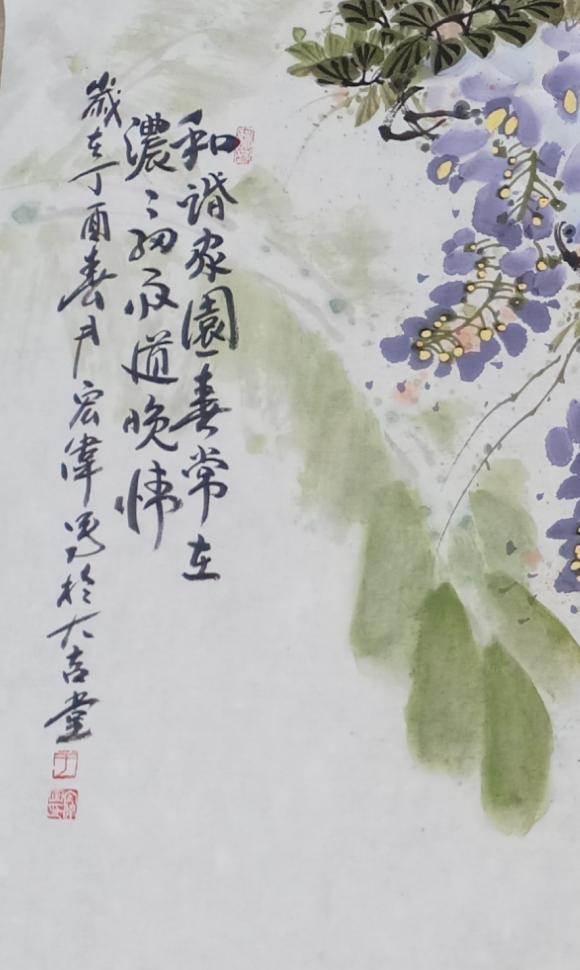 和諧家園春常在
濃〻細夜道晚情
歲在丁酉春月宏偉寫於大吉堂